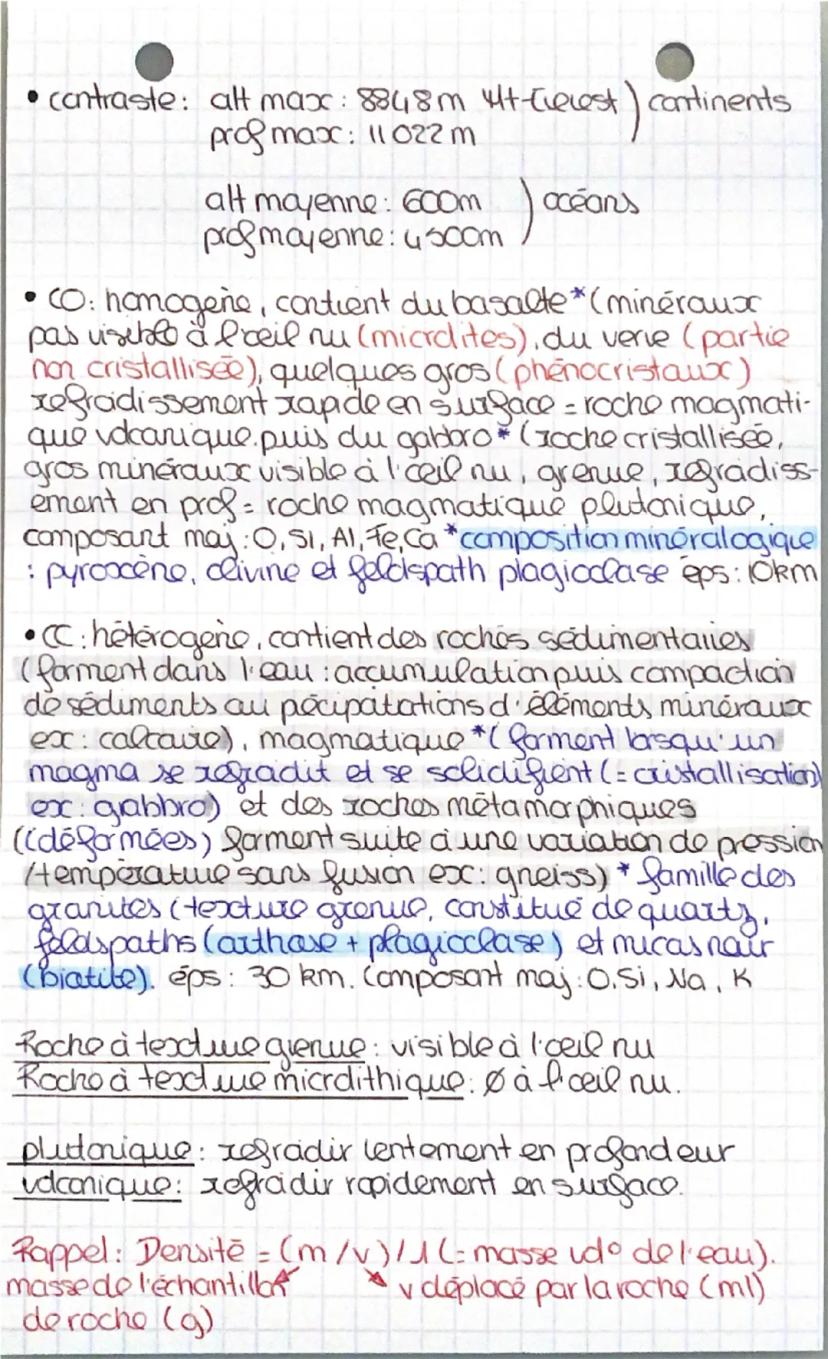 • contraste : alt max : 8848m Mt-Everest ) continents
prof max : 11022m
alt moyenne : 600m ) océans
prof moyenne : 4500m
• CO : homogène, contient du basalte* (minéraux
pas visible à l'œil nu (microlites), du verre (partie
non cristallisée), quelques gros (phénocristaux)
refroidissement rapide en surface = roche magmati-
que volcanique. puis du gabbro* (roche cristallisée,
gros minéraux visible à l'œil nu, grenue, refroidiss-
ement en prof = roche magmatique plutonique,
composant maj : O, Si, Al, Fe, Ca *composition minéralogique
: pyroxène, olivine et feldspath plagioclase éps : 10km
• CC : hétérogène, contient des roches sédimentaires
(forment dans l'eau : accumulation puis compaction
de sédiments ou pécipitations d'éléments minéraux
ex : calcaire), magmatique *(forment lorsqu'un
magma se refroidit et se solidifient (= cristallisation)
ex : gabbro) et des roches métamorphiques
((déformées) forment suite à une variation de pression
/température sans fusion ex : gneiss) * famille des
granites (texture grenue, constitué de quartz,
feldspaths (orthose + plagioclase) et micas noir
(biotite). éps : 30 km. Composant maj : O, Si, Na, K
Roche à texture grenue : visible à l'œil nu
Roche à texture microlithique : Ø à l'œil nu.
plutonique : refroidir lentement en profondeur
volcanique : refroidir rapidement en surface.
Rappel : Densité = (m / v) / 1 (= masse vol° de l'eau).
masse de l'échantillon v déplacé par la roche (ml)
de roche (g)